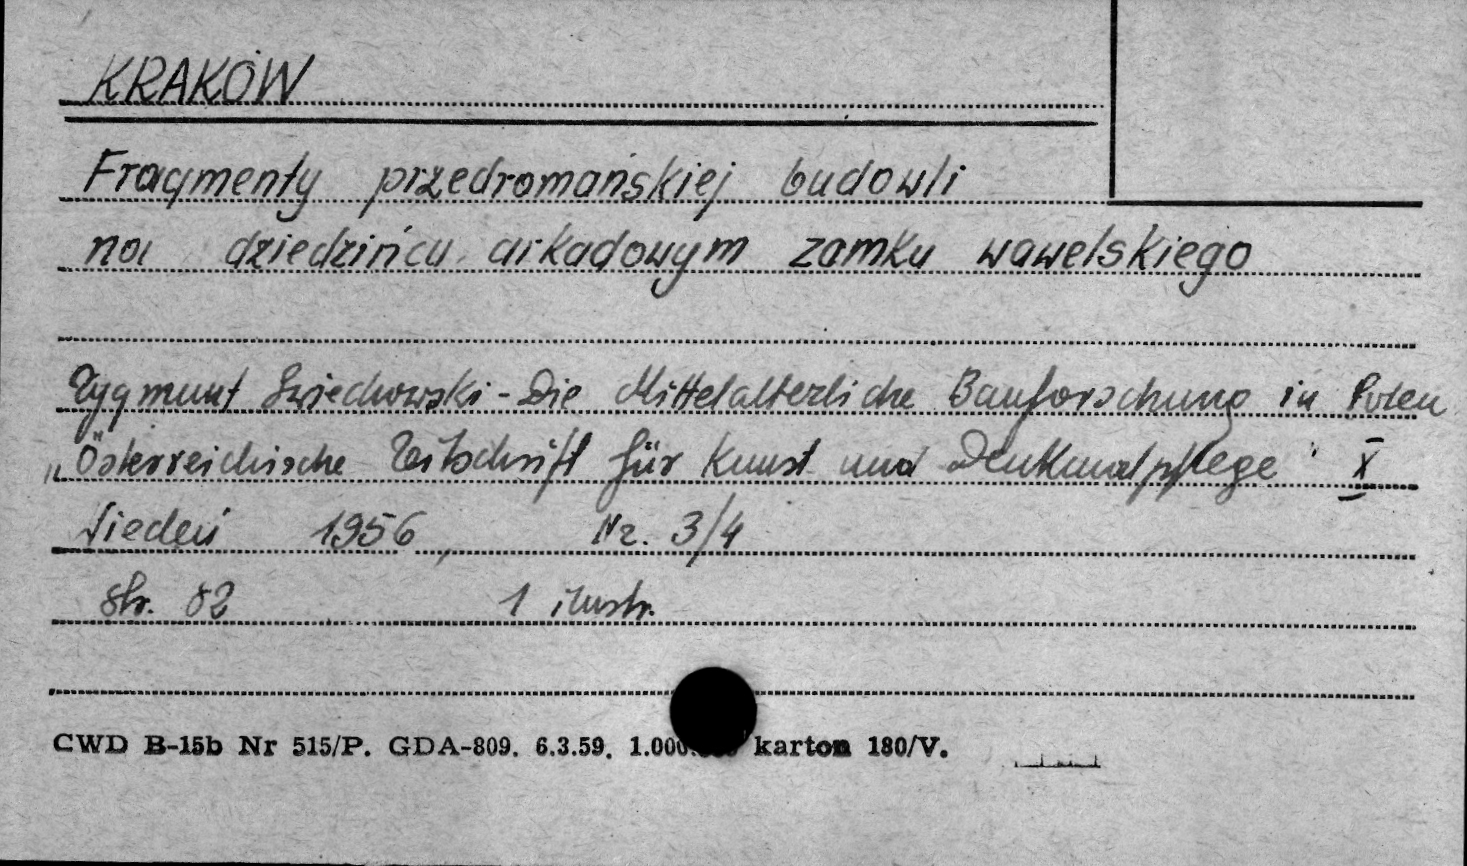 KRAKÓW
Fragmenty przedromańskiej budowli
na dziedzińcu arkadowym zamku wawelskiego
Zygmunt Świechowski - Die Mittelalterliche Bauforschung in Polen
„Österreichische Zeitschrift für Kunst und Denkmalpflege" X
Wiedeń 1956, Nr. 3/4
str. 82 1 ilustr.
CWD B-15b Nr 515/P. GDA-809. 6.3.59. 1.000. karton 180/V.